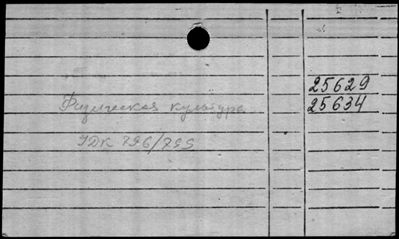 25629
Физическая культура 25634
УДК 796/799